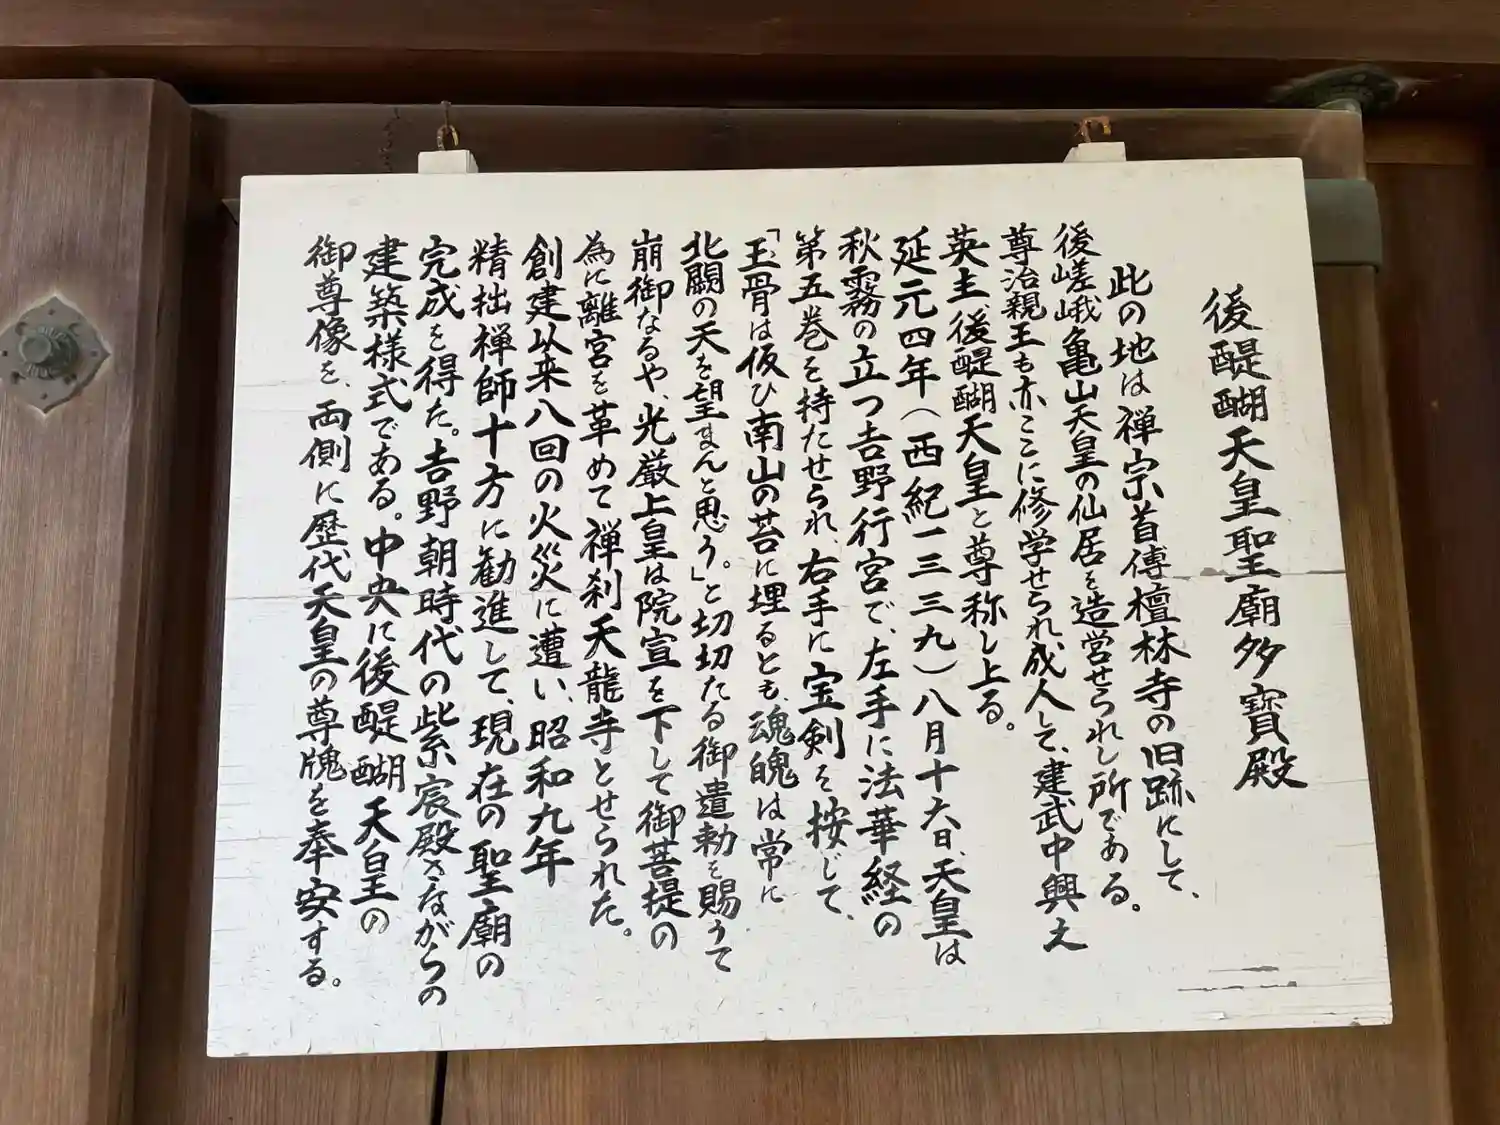 後醍醐天皇聖廟多寶殿
此の地は禅宗首傳檀林寺の旧跡にして、
後嵯峨亀山天皇の仙居を造営せられし所である。
尊治親王も亦ここに修学せられ成人して、建武中興之
英主、後醍醐天皇と尊称し上る。
延元四年(西紀一三三九)八月十六日、天皇は
秋霧の立つ吉野行宮で、左手に法華経の
第五巻を持たせられ、右手に宝剣を按じて、
「玉骨は仮ひ南山の苔に埋るとも、魂魄は常に
北闕の天を望まんと思う。」と切切たる御遺勅を賜うて
崩御なるや、光厳上皇は院宣を下して御菩提の
為に離宮を革めて禅刹天龍寺とせられた。
創建以来八回の火災に遭い、昭和九年
精拙禅師十方に勧進して、現在の聖廟の
完成を得た。吉野朝時代の紫宸殿さながらの
建築様式である。中央に後醍醐天皇の
御尊像を、両側に歴代天皇の尊牌を奉安する。